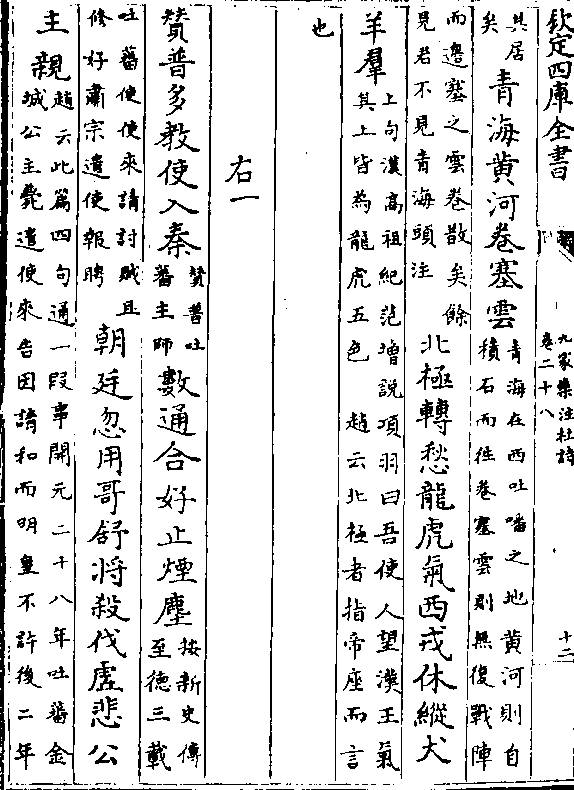 欽定四庫全書
九家集注杜詩
卷二十八
十二
其居
矣
青海黄河卷塞雲
青海在西吐蕃之地黄河則自
積石而徃卷塞雲則無復戰陣
而邊塞之雲卷散矣餘
見君不見青海頭注
北極轉愁龍虎氣西戎休縱犬
羊羣
上句漢高祖紀范增説項羽曰吾使人望漢王氣
其上皆為龍虎五色 趙云北極者指帝座而言
也
右一
贊普多教使入秦
贊普吐
蕃主
師
數通合好止煙塵
按新史傳
至德三載
吐蕃使使來請討賊且
修好肅宗遣使報聘
朝廷忽用哥舒將殺伐虚悲公
主親
趙云此篇四句通一段事開元二十八年吐蕃金
城公主薨遣使來告因請和而明皇不許後二年